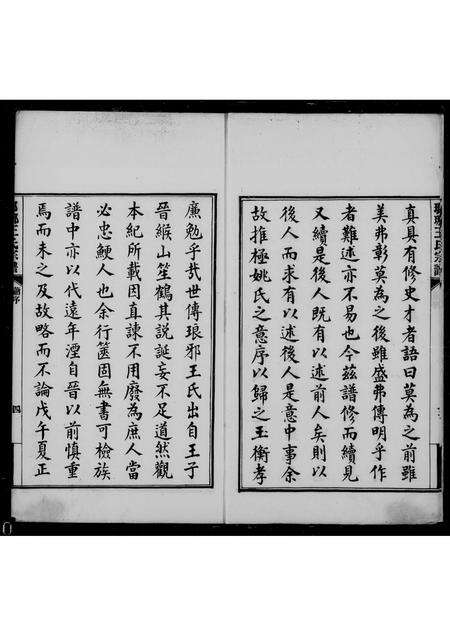 真具有修史才者語曰莫為之前雖
美弗彰莫為之後雖盛弗傳明乎作
者難述亦不易也今茲譜修而續見
又續是後人既有以述前人矣則以
後人而有以述後人是意中事余
故推極姚氏之意序以歸之玉衡孝
廉勉乎哉世傳琅邪王氏出自王子
晉緱山笙鶴其說誕妄不足道然觀
本紀所載因直諫不用廢為庶人當
必忠鯁人也余行篋固無書可檢族
譜中亦以代遠年湮自晉以前慎重
焉而未之及故略而不論戊午夏正
四